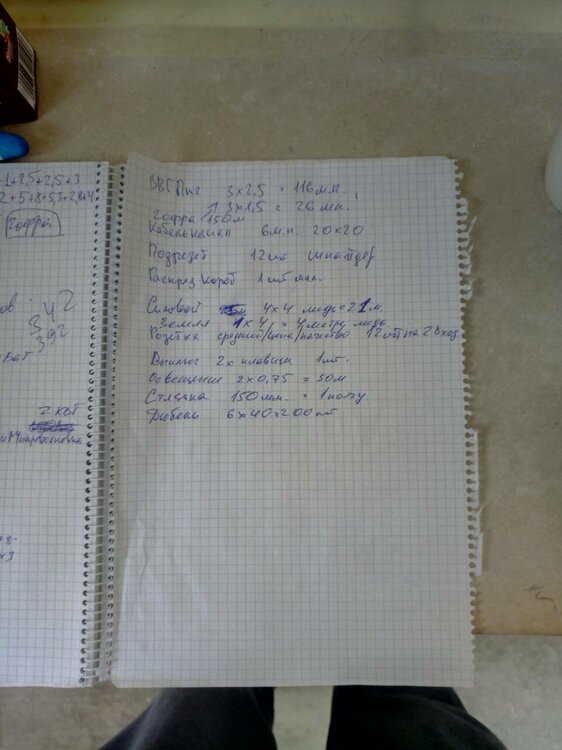 1+2,5+2,5+3
2+5+8+5,3+2,8+4
гофра
ов
342
392
2 кВт
x3
ВВГПнг 3x2,5 = 116 м.п.
3x1,5 = 26 мп.
гофра 150м
Кабельканал 6 м.п. 20x20
Подрозет 12шт
Распред короб 1 шт мал.
Силовой 4x4 медь = 21м.
Земля 1x4 = 4 метра медь
Розетка средний/цена/качество 12шт на 2 вход
Выключ 2х клавиш 1шт.
Освещение 2x0,75 = 50м
Стяжка 150мм. = 1 пачку
Дюбель 6x40=200шт